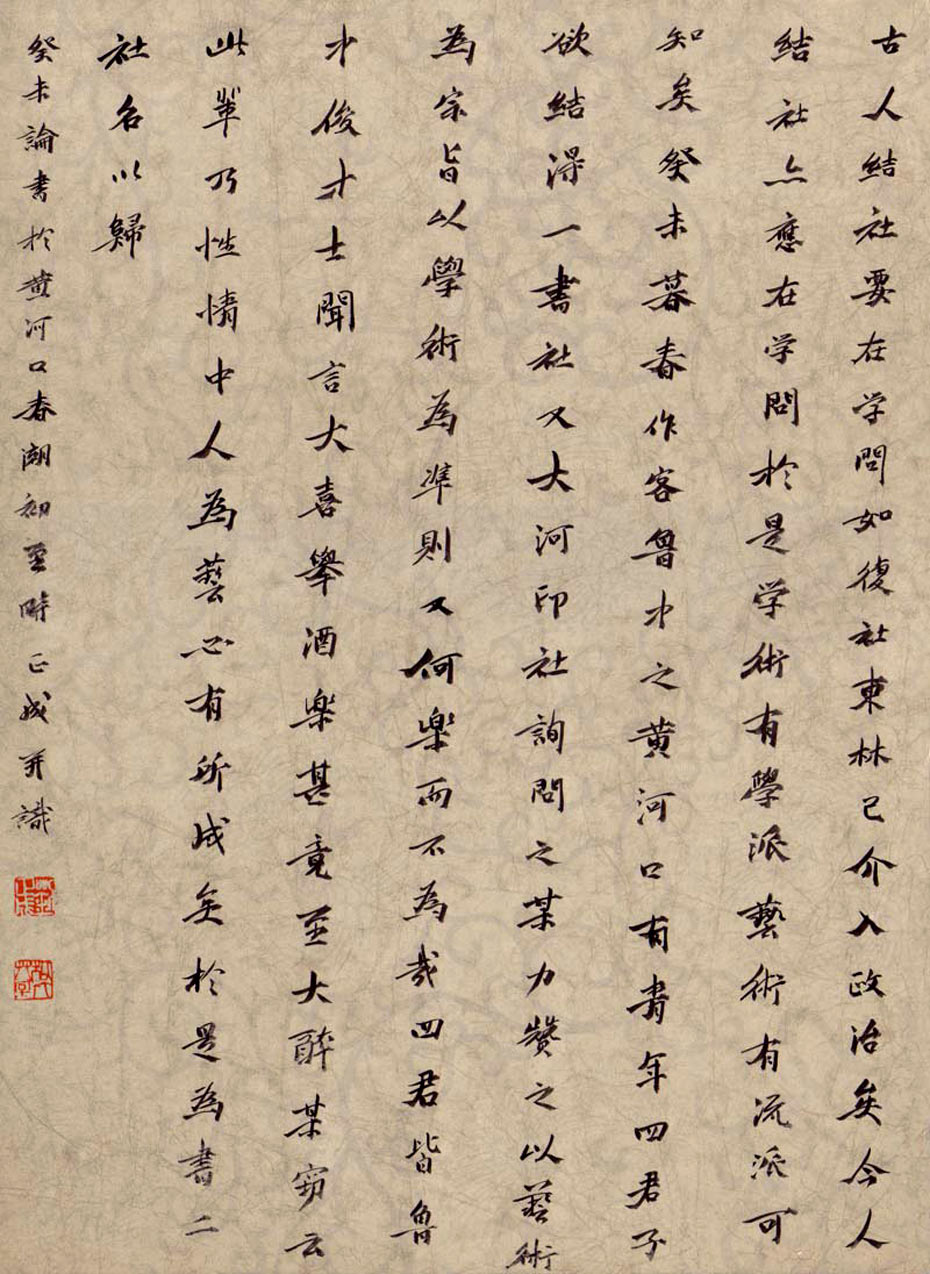 古人結社要在学問如復社東林已介入政治矣今人
結社亦應在学問於是学術有學派藝術有流派可
知矣癸未暮春作客魯中之黄河口有青年四君子
欲結得一書社又大河印社詢問之某力贊之以藝術
為宗旨以學術為準則又何樂而不為哉四君皆魯
中俊才士聞言大喜舉酒樂甚竟至大醉某窃云
此輩乃性情中人為藝必有所成矣於是為書二
社名以歸
癸未論書於黄河口春潮初至時正成并識